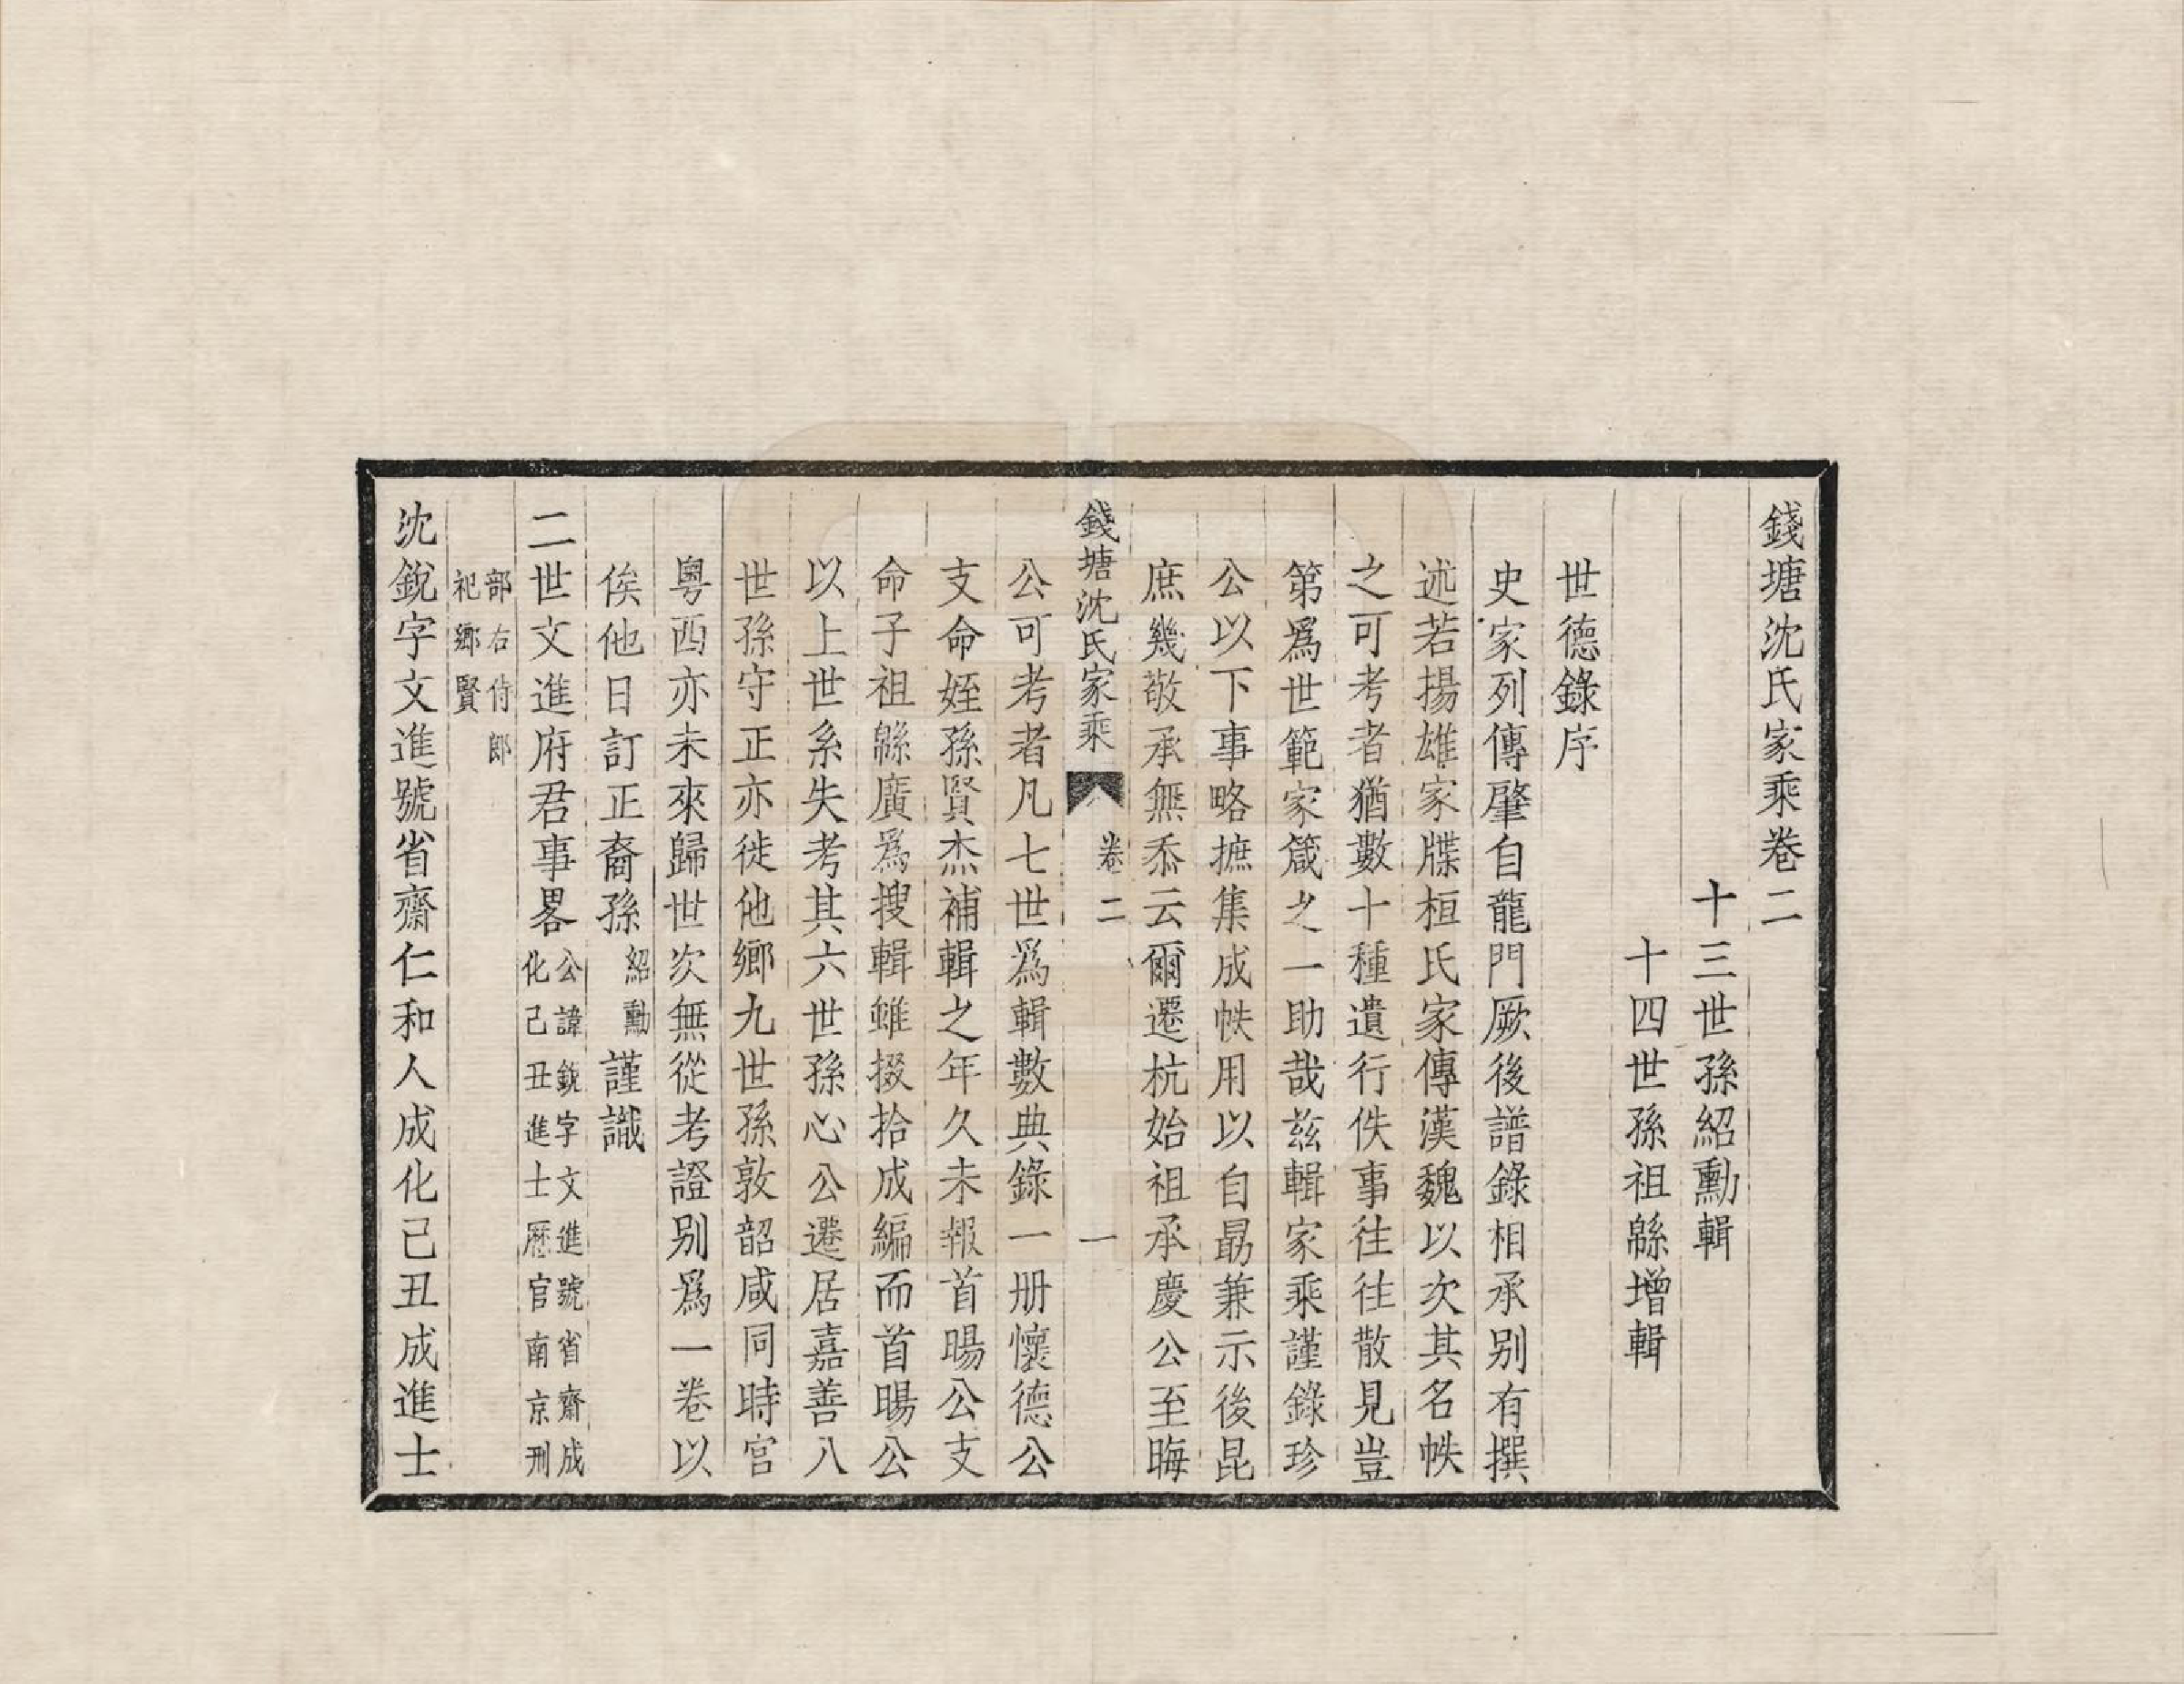 錢塘沈氏家乘卷二
十三世孫紹勳輯
十四世孫祖緜增輯
世德錄序
史家列傳肇自龍門厥後譜錄相承别有撰
述若揚雄家牒桓氏家傳漢魏以次其名帙
之可考者猶數十種遺行佚事往往散見豈
第爲世範家箴之一助哉茲輯家乘謹錄珍
公以下事略摭集成帙用以自勗兼示後昆
庶幾敬承無忝云爾遷杭始祖承慶公至晦
錢塘沈氏家乘 卷二 一
公可考者凡七世爲輯數典錄一册懷德公
支命姪孫賢杰補輯之年久未報首暘公支
命子祖緜廣爲搜輯雖掇拾成編而首暘公
以上世系失考其六世孫心公遷居嘉善八
世孫守正亦徙他鄉九世孫敦韶咸同時官
粤西亦未來歸世次無從考證别爲一卷以
俟他日訂正裔孫紹勳謹識
二世文進府君事畧公諱銳字文進號省齋成
化己丑進士歷官南京刑
部右侍郎
祀鄉賢
沈銳字文進號省齋仁和人成化己丑成進士